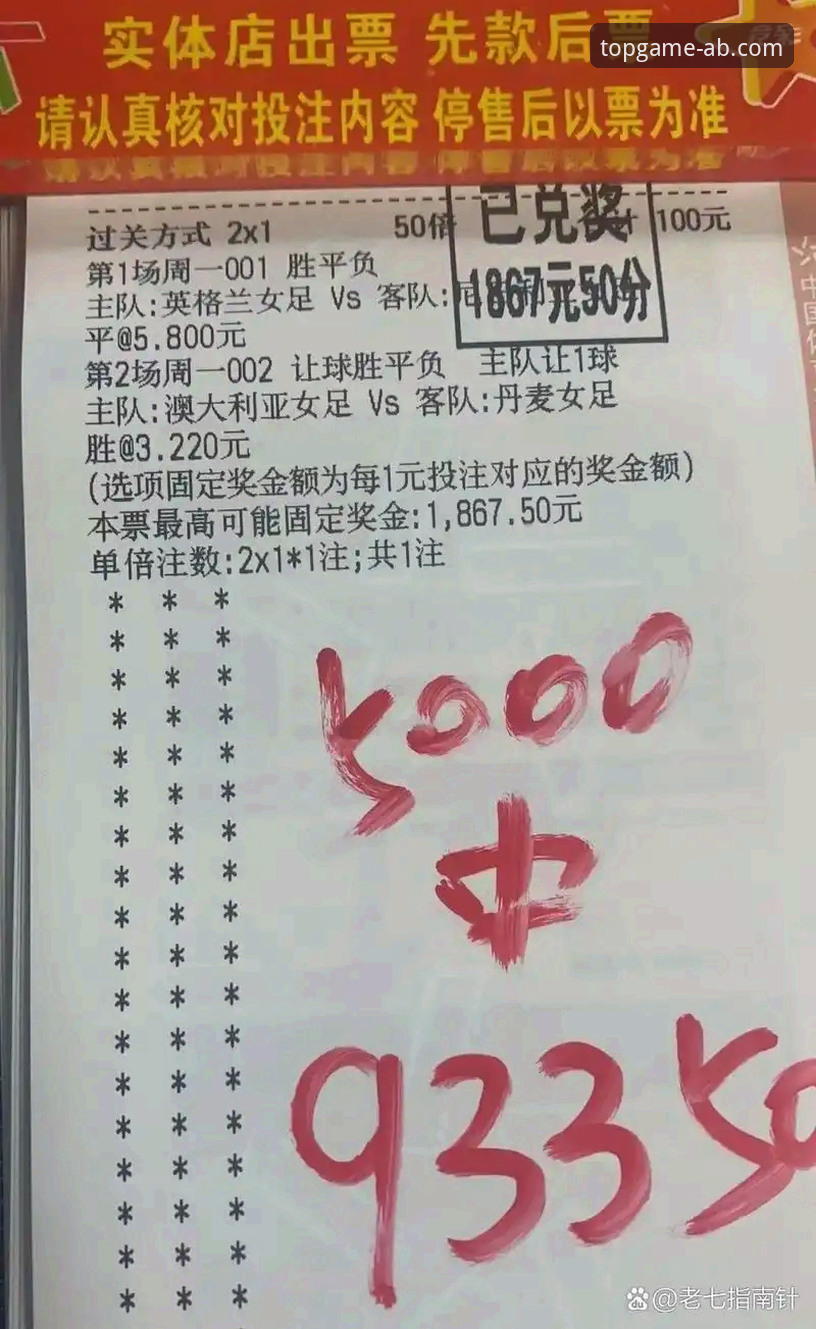 实体店出票 先款后票
topgame-ab.com
请认真核对投注内容 停售后以票为准
过关方式 2x1 50倍 100元
已兑奖
1867元50分
第1场周一001 胜平负
主队:英格兰女足 Vs 客队:
平@5.800元
第2场周一002 让球胜平负 主队让1球
主队:澳大利亚女足 Vs 客队:丹麦女足
胜@3.220元
(选项固定奖金额为每1元投注对应的奖金额)
本票最高可能固定奖金:1,867.50元
单倍注数:2x1*1注;共1注
* * *
* * *
* * *
* * *
* * *
* * *
* * *
* * *
* * *
* * *
* * *
* * *
* * *
* * *
* * *
* * *
* * *
* * *
5000
中
93350
@老七指南针